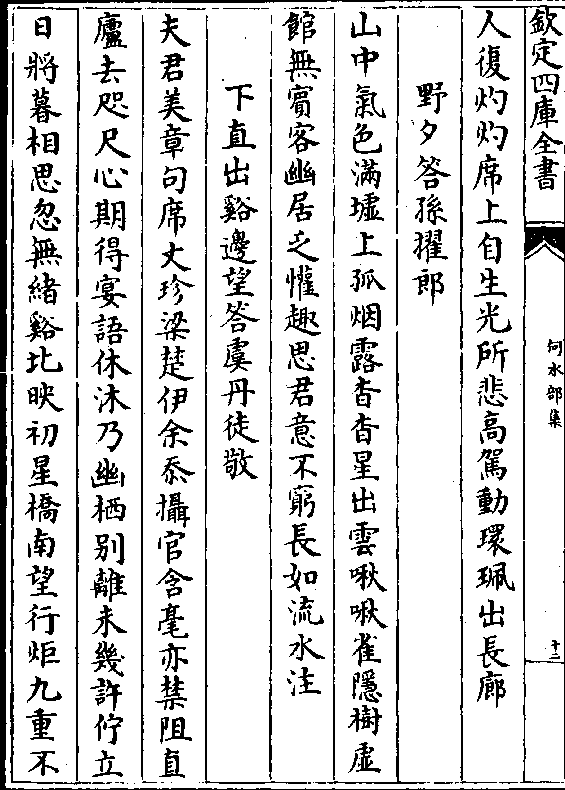 欽定四庫全書
何水部集
十二
人復灼灼席上自生光所悲高駕動環珮出長廊
野夕答孫擢郎
山中氣色滿墟上孤烟露杳杳星出雲啾啾雀隱樹虚
館無賔客幽居乏懽趣思君意不窮長如流水注
下直出谿邊望答虞丹徒敬
夫君美章句席丈珍梁楚伊余忝攝官含毫亦禁阻直
廬去咫尺心期得宴語休沐乃幽栖别離未幾許佇立
日將暮相思忽無緒谿北映初星橋南望行炬九重不